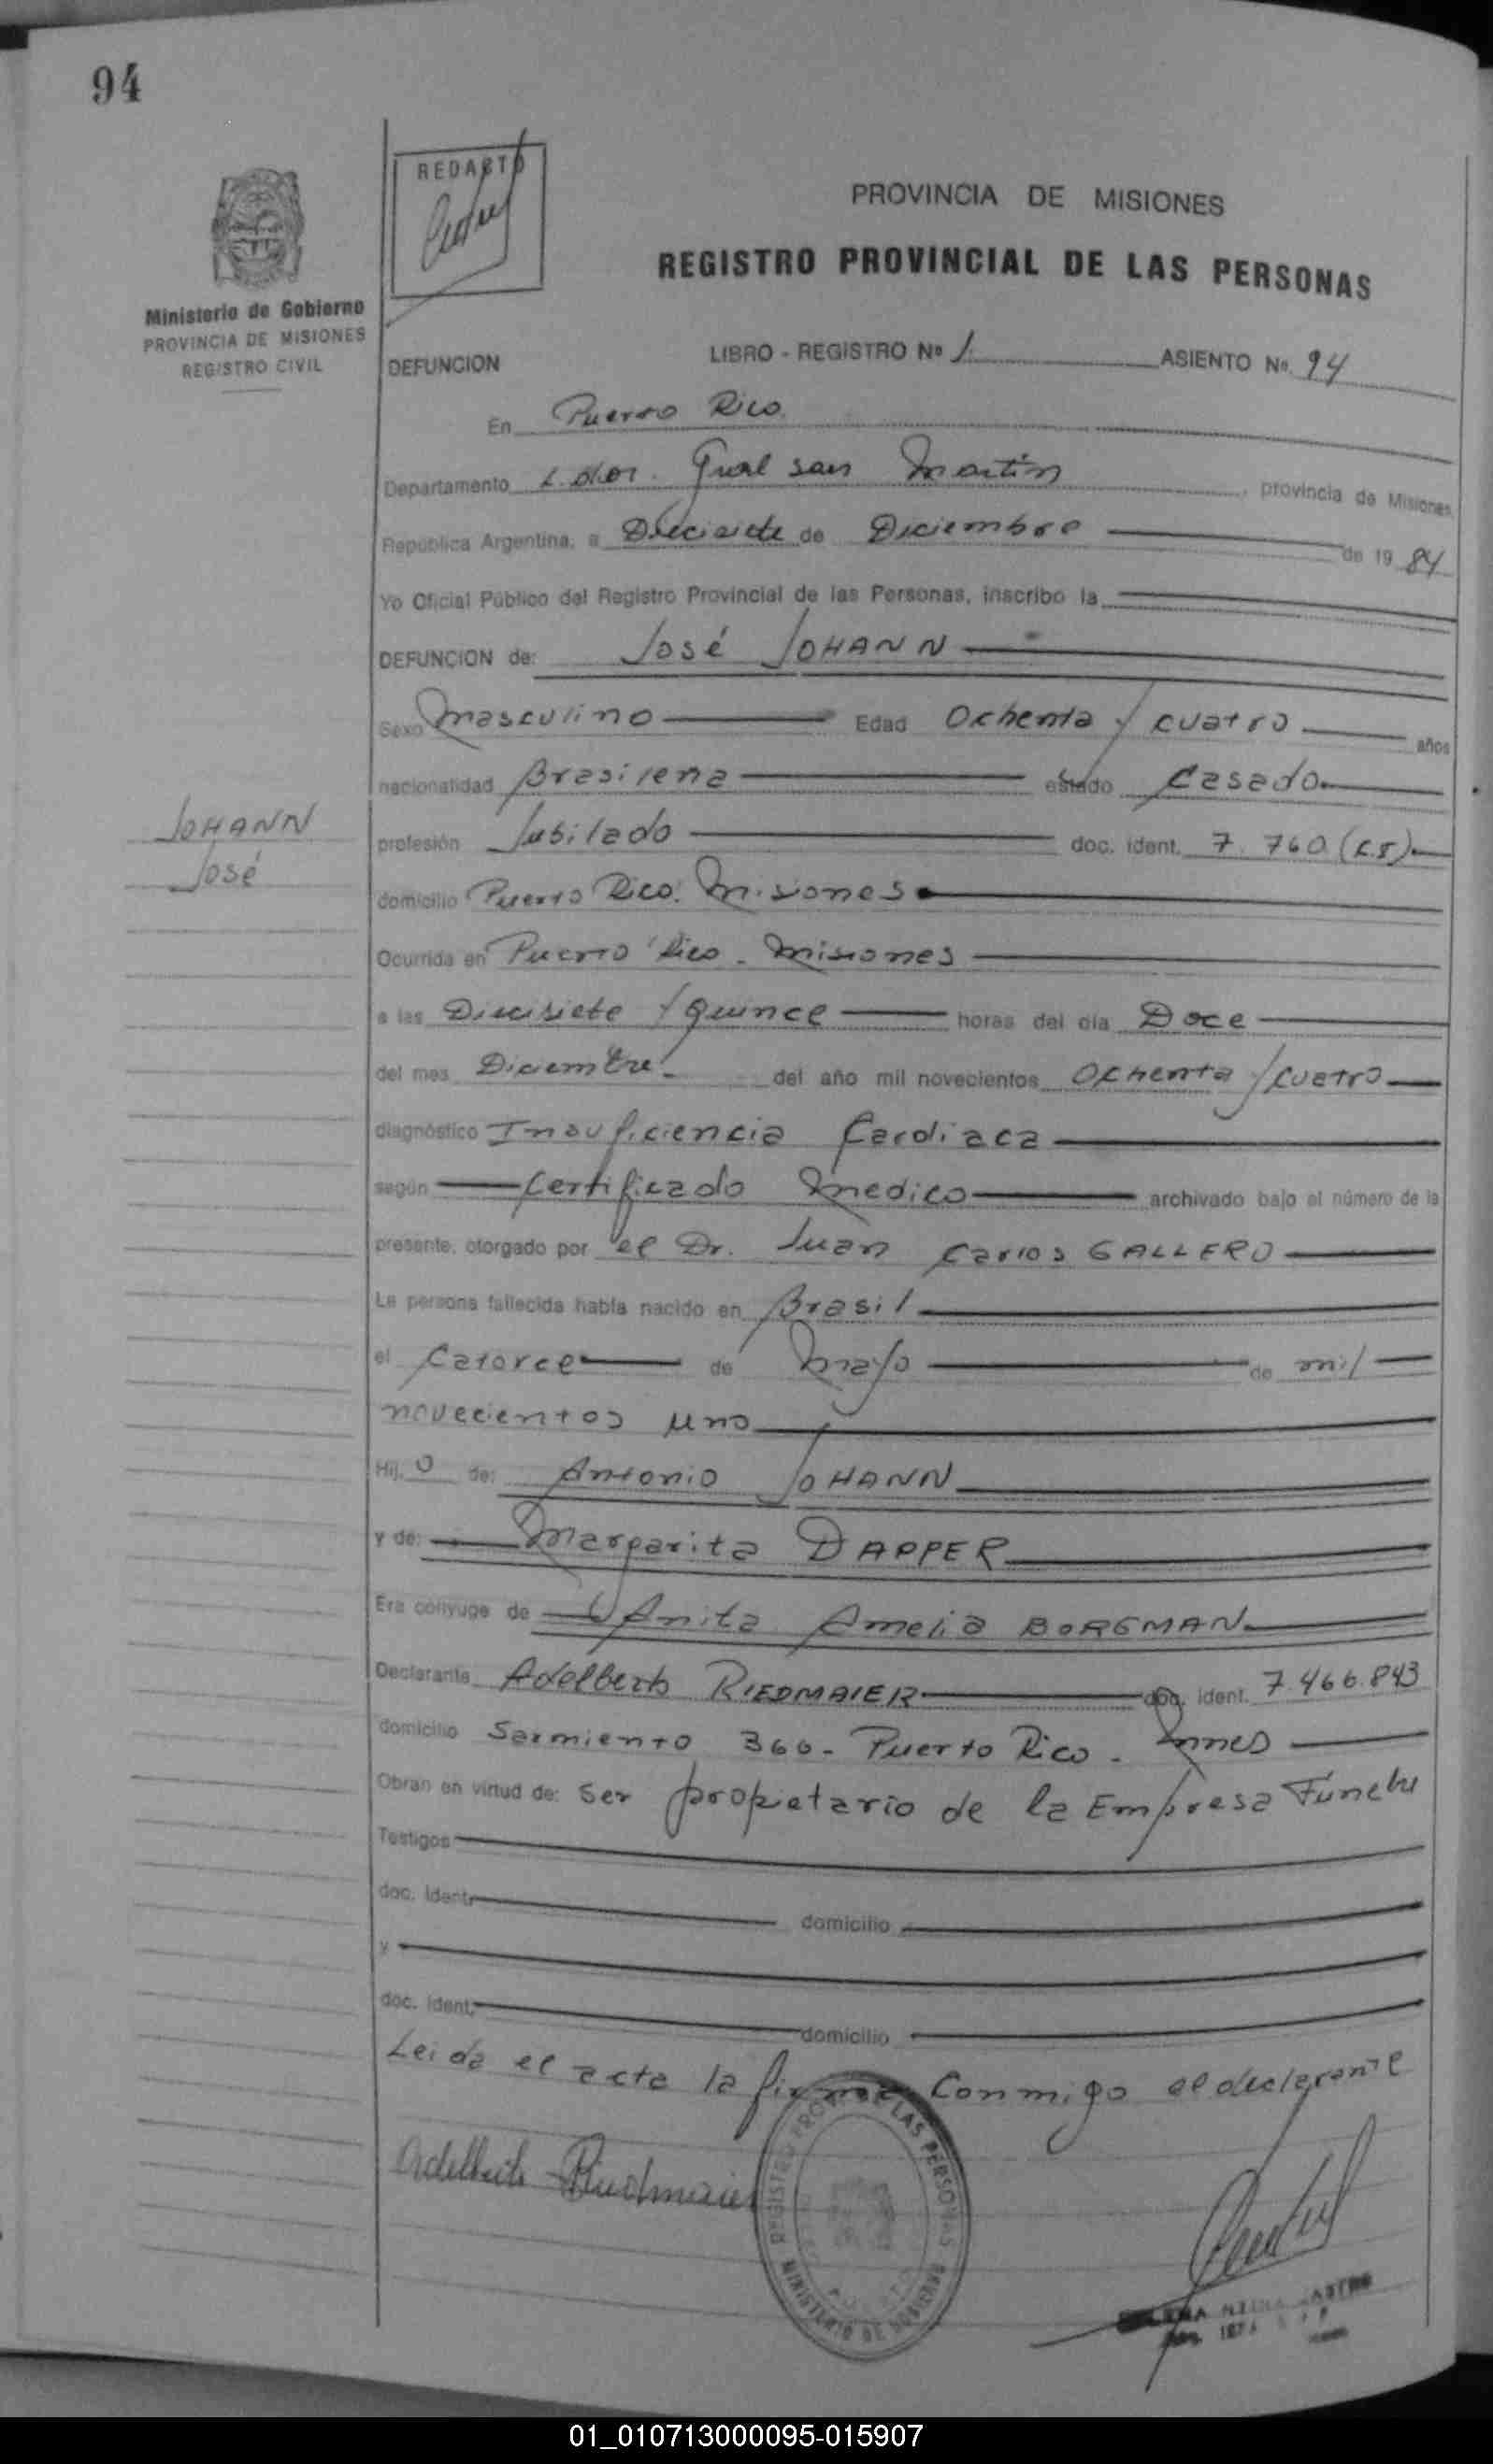 94
REDACTO
PROVINCIA DE MISIONES
REGISTRO PROVINCIAL DE LAS PERSONAS
Ministerio de Gobierno
PROVINCIA DE MISIONES
REGISTRO CIVIL
DEFUNCION
LIBRO - REGISTRO Nº 1. ASIENTO Nº. 94
En Puerto Rico.
Departamento L. dor. Gral san Martín, provincia de Misiones,
República Argentina, a Diecisiete de Diciembre de 19 84
Yo Oficial Público del Registro Provincial de las Personas, inscribo la
DEFUNCION de: José JOHANN
Sexo masculino Edad Ochenta y cuatro años
nacionalidad Brasilena estado Casado
JOHANN
José
profesión Jubilado doc. ident. 7.760 (C.I)
domicilio Puerto Rico. Misiones
Ocurrida en Puerto Rico - Misiones
a las Diecisiete y Quince horas del día Doce
del mes Diciembre. del año mil novecientos Ochenta y cuatro
diagnóstico Insuficiencia Cardiaca
según Certificado Medico archivado bajo el número de la
presente, otorgado por el Dr. Juan Carlos GALLERO
La persona fallecida había nacido en Brasil
el Catorce de Mayo de mil
novecientos uno
Hij o de: Antonio JOHANN
y de: Margarita DAPPER
Era cónyuge de Anita Amelia BORGMAN
Declarante Adelberto RIEDMAIER doc. ident. 7.466.843
domicilio Sarmiento 360 - Puerto Rico - Mnes
Obran en virtud de: ser propietario de la Empresa Fúnebre
Testigos
doc. Ident. domicilio
y
doc. Ident. domicilio
Leida el acta la firma Conmigo el declarante
Adelberto Riedmaier
REGISTRO PROV. DE LAS PERSONAS
MINISTERIO DE GOBIERNO
01_010713000095-015907